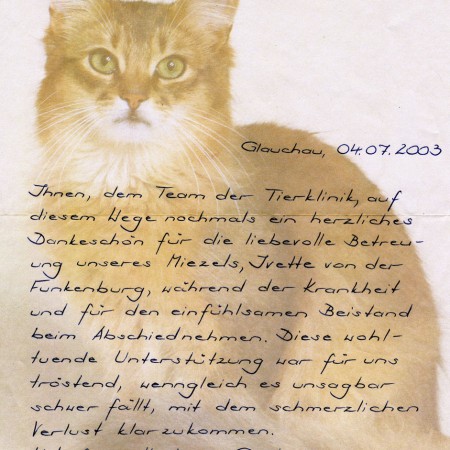 Glauchau, 04.07.2003
Ihnen, dem Team der Tierklinik, auf
diesem Wege nochmals ein herzliches
Dankeschön für die liebevolle Betreu-
ung unseres Miezels, Ivette von der
Funkenburg, während der Krankheit
und für den einfühlsamen Beistand
beim Abschiednehmen. Diese wohl-
tuende Unterstützung war für uns
tröstend, wenngleich es unsagbar
schwer fällt, mit dem schmerzlichen
Verlust klarzukommen.